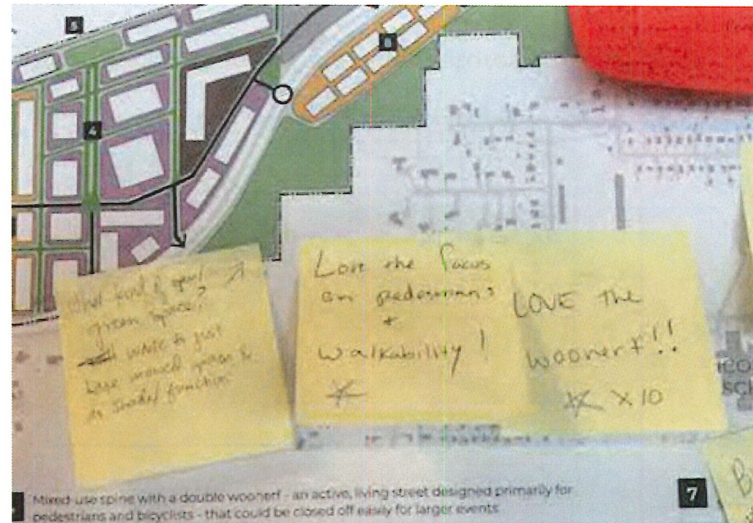 5
8
4
What kind of open/
green space?
waste to just
have mowed green &
no shade/function
Love the focus
on pedestrians
+
walkability!
LOVE the
woonerf!!
x10
ICO
SCH
Mixed-use spine with a double woonerf - an active, living street designed primarily for
pedestrians and bicyclists - that could be closed off easily for larger events
7
B